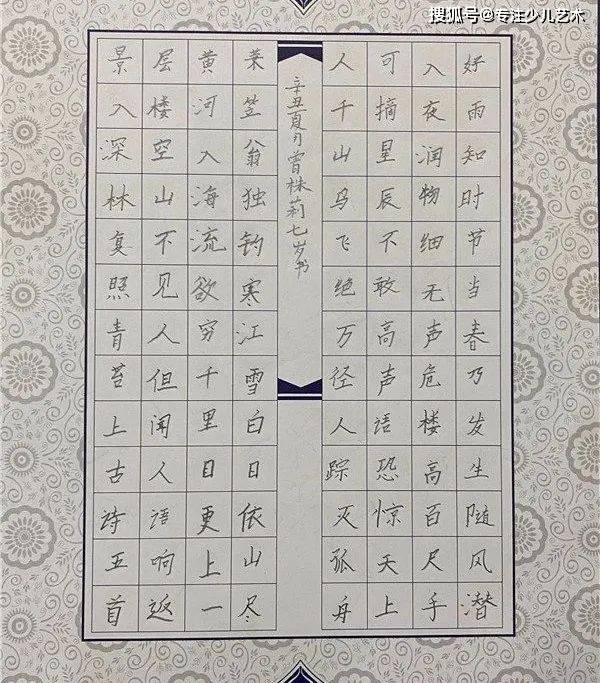 搜狐号@专注少儿艺术
好雨知时节当春乃发生随风潜
入夜润物细无声危楼高百尺手
可摘星辰不敢高声语恐惊天上
人千山鸟飞绝万径人踪灭孤舟
辛丑夏月曾株莉七岁书
蓑笠翁独钓寒江雪白日依山尽
黄河入海流欲穷千里目更上一
层楼空山不见人但闻人语响返
景入深林复照青苔上古诗五首